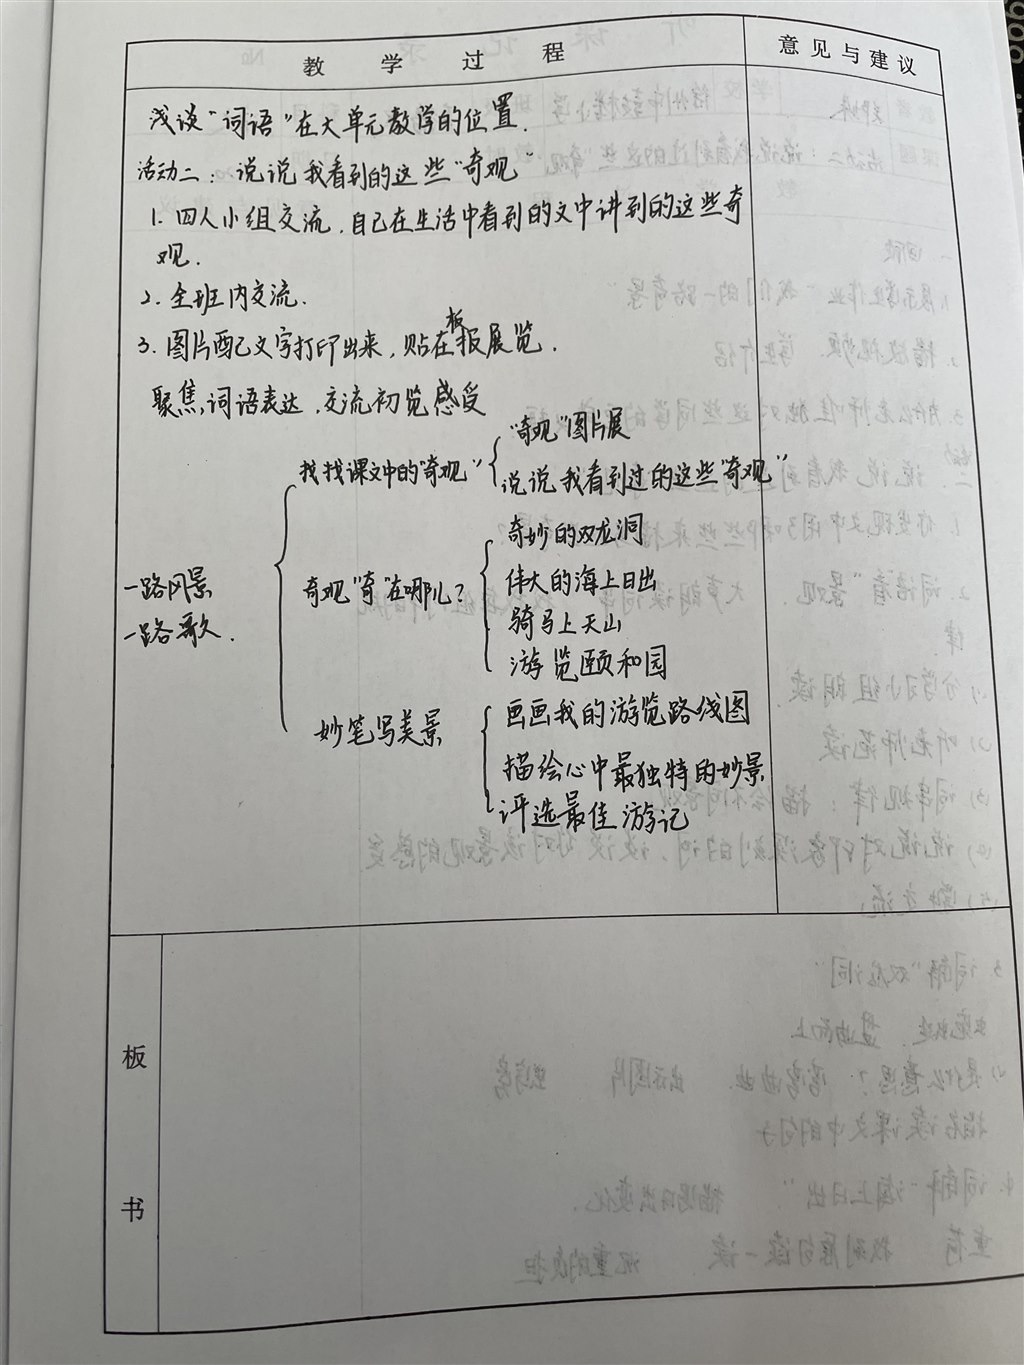 教学过程
意见与建议
浅谈“词语”在大单元教学的位置.
活动二：说说我看到的这些“奇观”
1. 四人小组交流.自己在生活中看到的文中讲到的这些奇
观.
2. 全班内交流.
板
3. 图片配文字打印出来，贴在报展览.
聚焦词语表达.交流初览感受
“奇观”图片展
找找课文中的“奇观”
说说我看到过的这些“奇观”
奇妙的双龙洞
伟大的海上日出
奇观“奇”在哪儿？
骑马上天山
游览颐和园
一路风景
一路歌.
画画我的游览路线图
妙笔写美景
描绘心中最独特的妙景
评选最佳游记
板
书